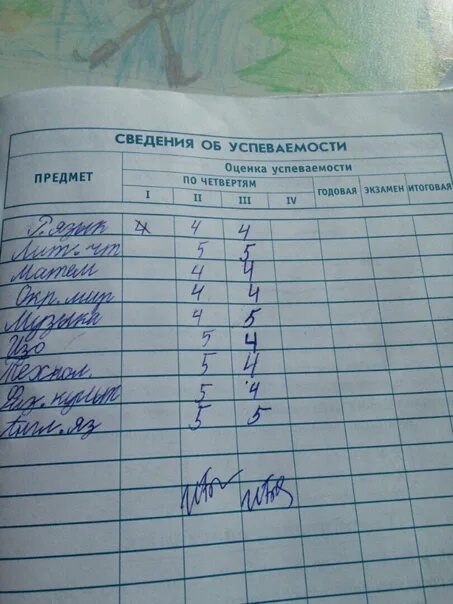 СВЕДЕНИЯ ОБ УСПЕВАЕМОСТИ
ПРЕДМЕТ
Оценка успеваемости
ПО ЧЕТВЕРТЯМ ГОДОВАЯ ЭКЗАМЕН ИТОГОВАЯ
I II III IV
Р. язык 4 4 4
Лит. чт 5 5
Матем 4 4
Окр. мир 4 4
Музыка 4 5
Изо 5 4
Технол. 5 4
Физ. культ 5 4
Англ. яз 5 5